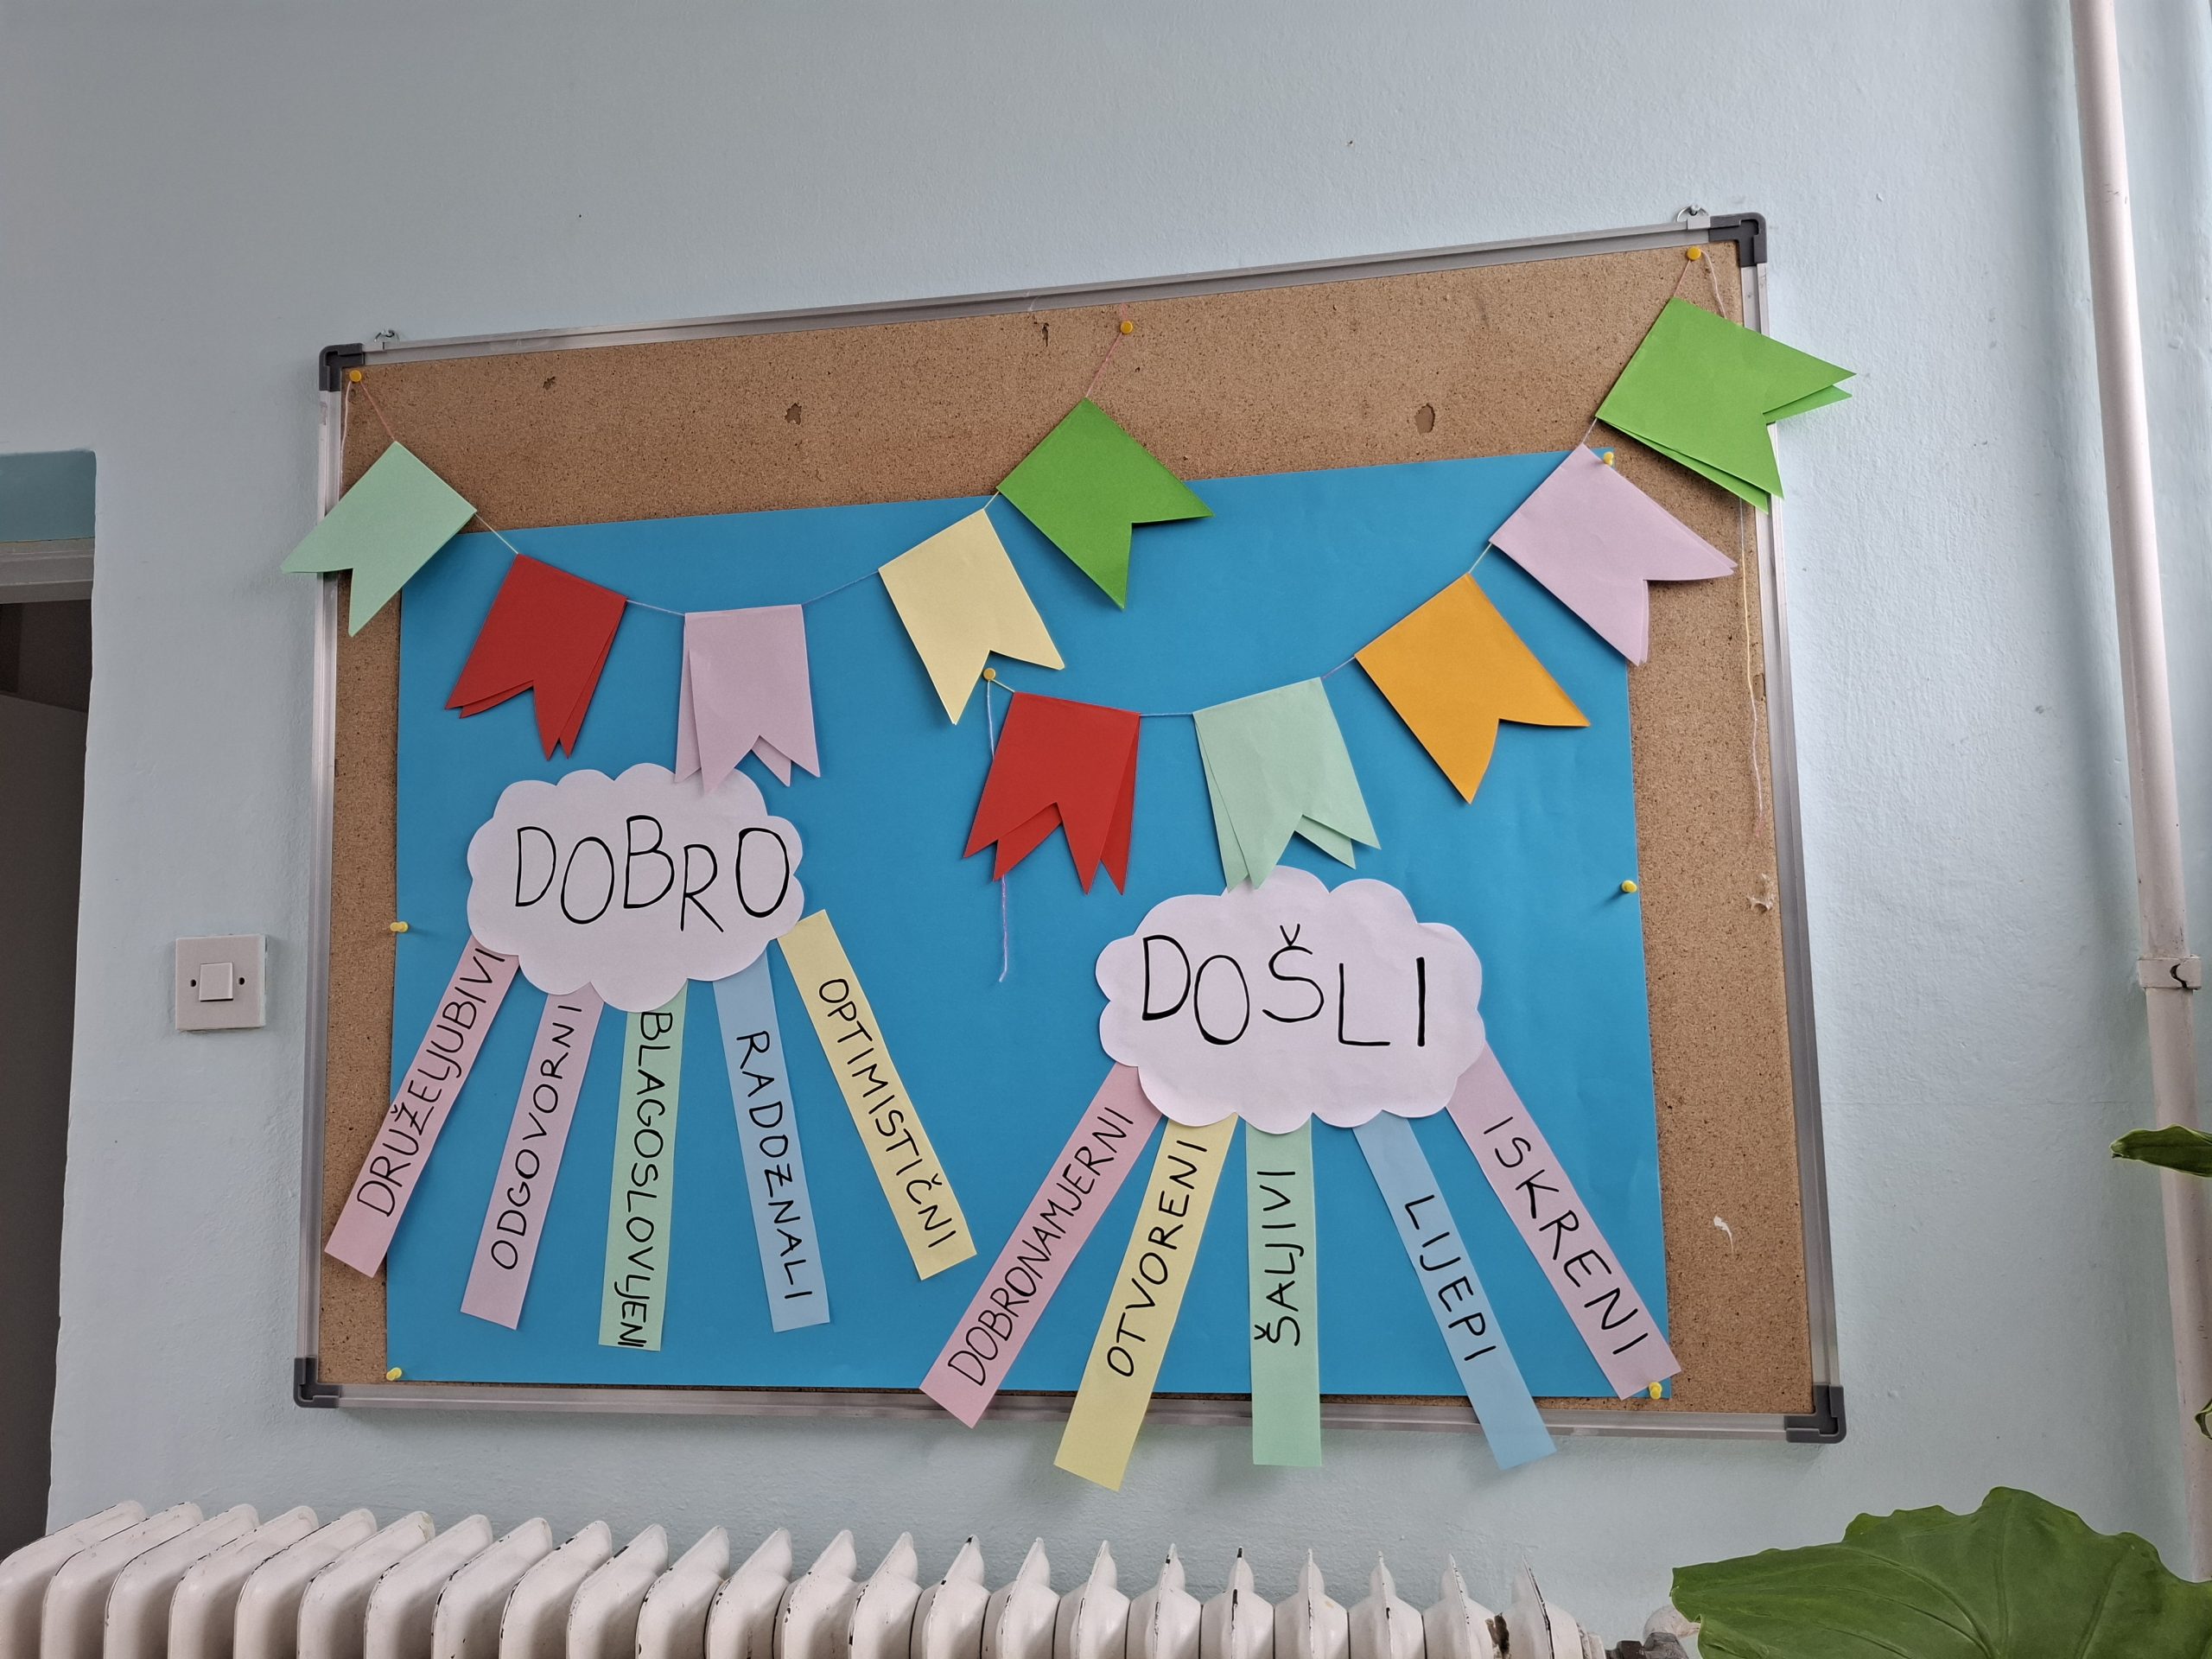 DOBRO
DRUŽELJUBIVI
ODGOVORNI
BLAGOSLOVLJENI
RADOZNALI
OPTIMISTIČNI
DOŠLI
DOBRONAMJERNI
OTVORENI
ŠALJIVI
LIJEPI
ISKRENI